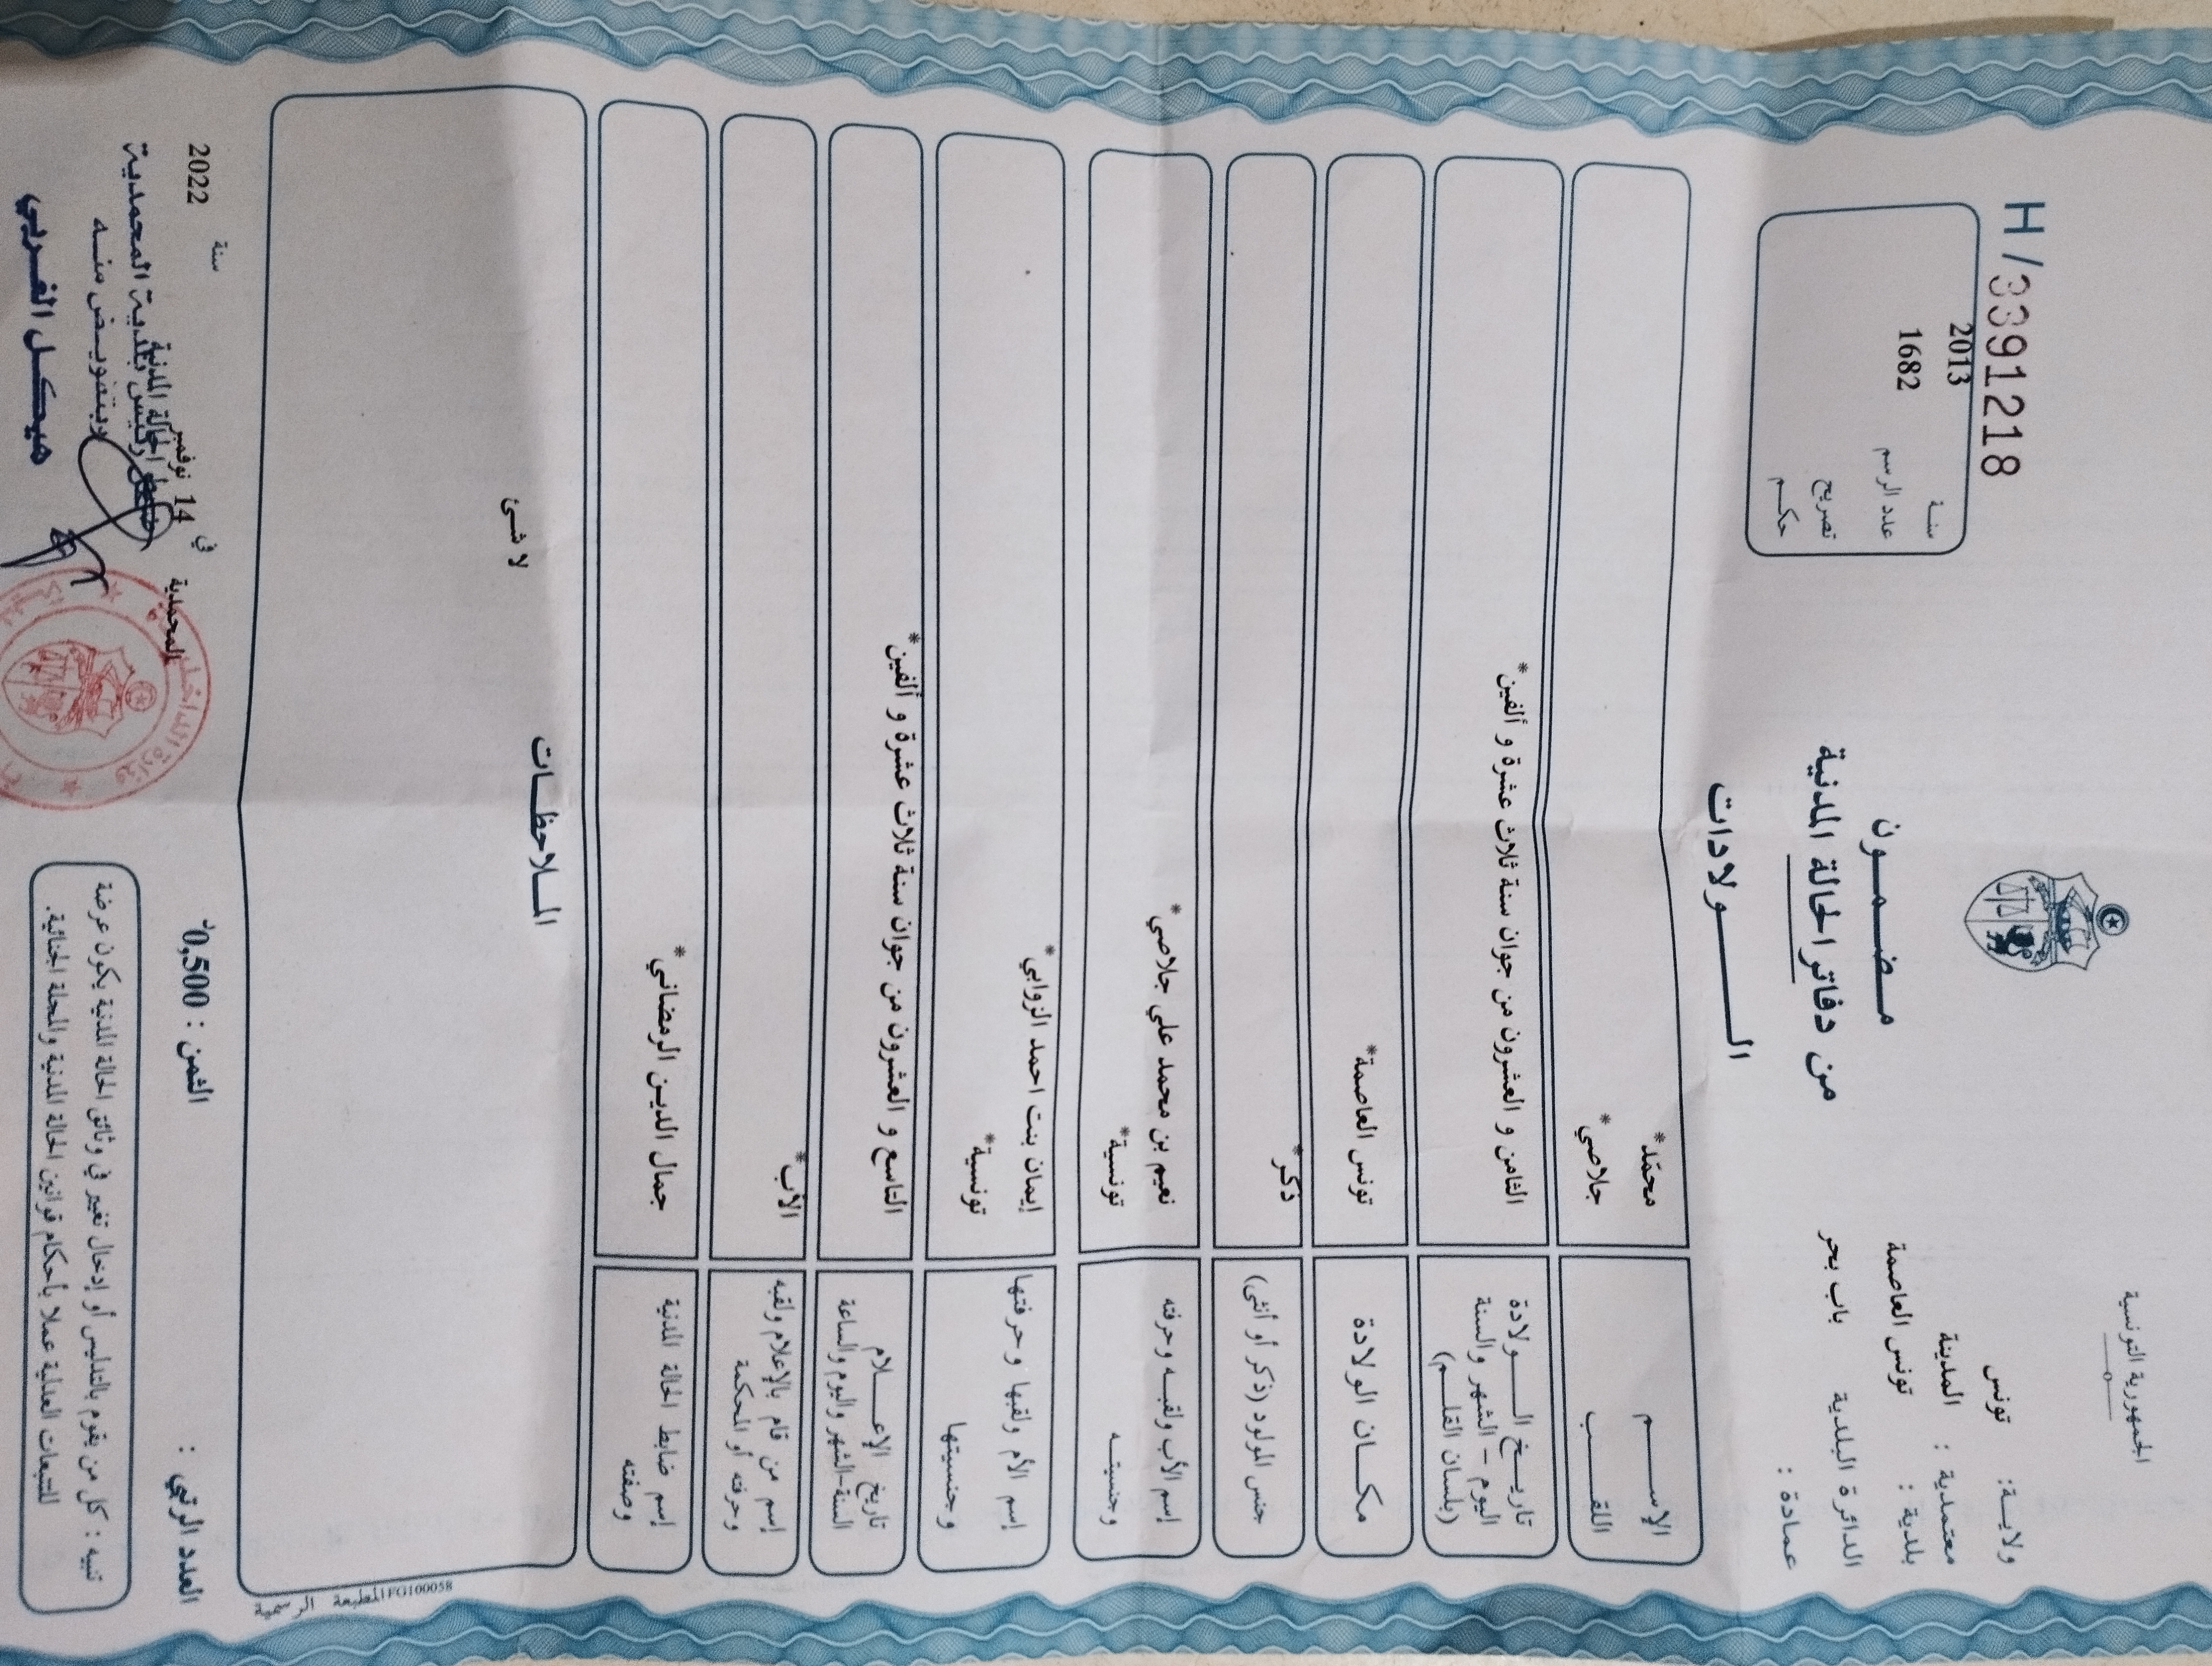 الجمهورية التونسية
ولايــة: تونس
معتمدية : المدينة
بلدية : تونس العاصمة
الدائرة البلدية باب بحر
عمـادة :
H/3391218
سنــة 2013
عدد الرسم 1682
تصريح
حكــم
مـضـمــون
من دفاتر الحالة المدنية
الــــــولادات
الإســـــم محمّد*
اللقـــــب جلاصي*
تاريــخ الــــولادة
اليوم - الشهر والسنة
(بلسان القلــم)
الثامن و العشرون من جوان سنة ثلاث عشرة و ألفين*
مكــان الولادة تونس العاصمة*
جنس المولود (ذكر أو أنثى) ذكر*
إسم الأب ولقبــه وحرفته نعيم بن محمد علي جلاصي*
وجنسيتــه تونسية*
إسم الأم ولقبها وحرفتها إيمان بنت احمد الزوابي*
وجنسيتها تونسية*
تاريخ الإعـــلام
السنة-الشهر واليوم والساعة
التاسع و العشرون من جوان سنة ثلاث عشرة و ألفين*
إسم من قام بالإعلام ولقبه
وحرفته أو المحكمة
الأب*
إسم ضابط الحالة المدنية
وصفته
جمال الدين الرمضاني*
المــلاحظــات
لا شــئ
المطبعة الرسمية FG100058
العدد الرتبي :
الثمن : 0,500د
المحمدية في 14 نوفمبر سنة 2022
ضابط الحالة المدنية
رئيس بلدية المحمدية
وبتفويــض منــه
هيكــل الغــربي
تنبيه : كل من يقوم بالتدليس أو إدخال تغيير في وثائق الحالة المدنية يكون عرضة
للتتبعات العدلية عملا بأحكام قوانين الحالة المدنية والمجلة الجنائية.